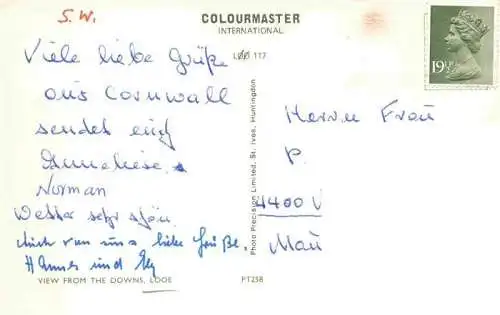 S.W.
COLOURMASTER
INTERNATIONAL
117
Viele liebe Grüße
aus Cornwall
sendet euch
Anneliese &
Norman
Wetter sehr schön.
Auch von uns liebe Grüße.
Hannes und
VIEW FROM THE DOWNS, LOOE
PT258
Photo Precision Limited, St. Ives, Huntingdon
19½
Herrn Frau
P.
4400 V